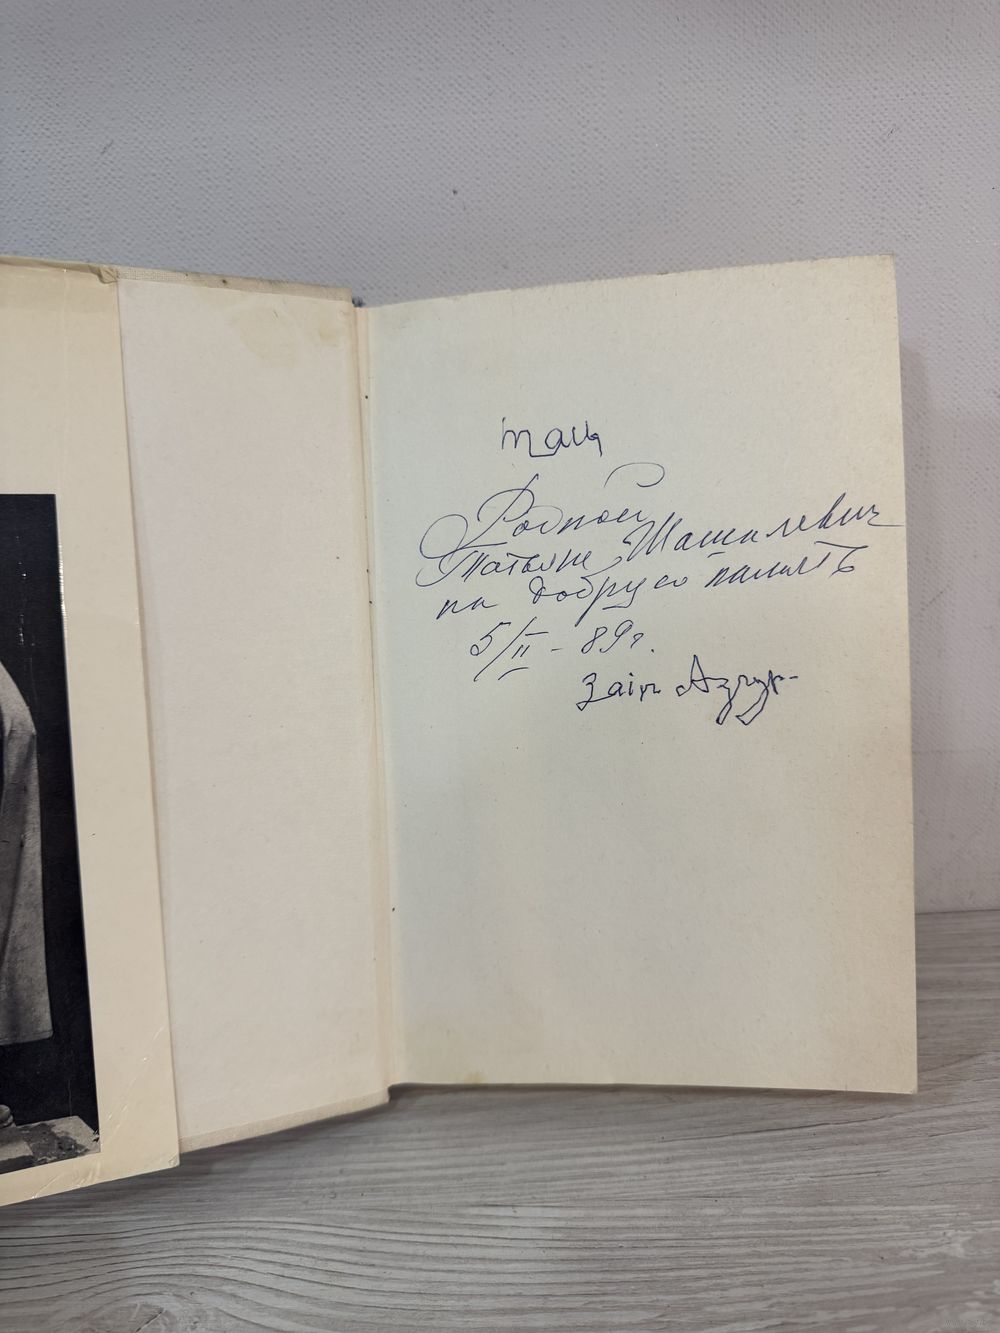 Родной
Татьяне Машилевич
на добрую память
5/II - 89 г.
Заир Азгур